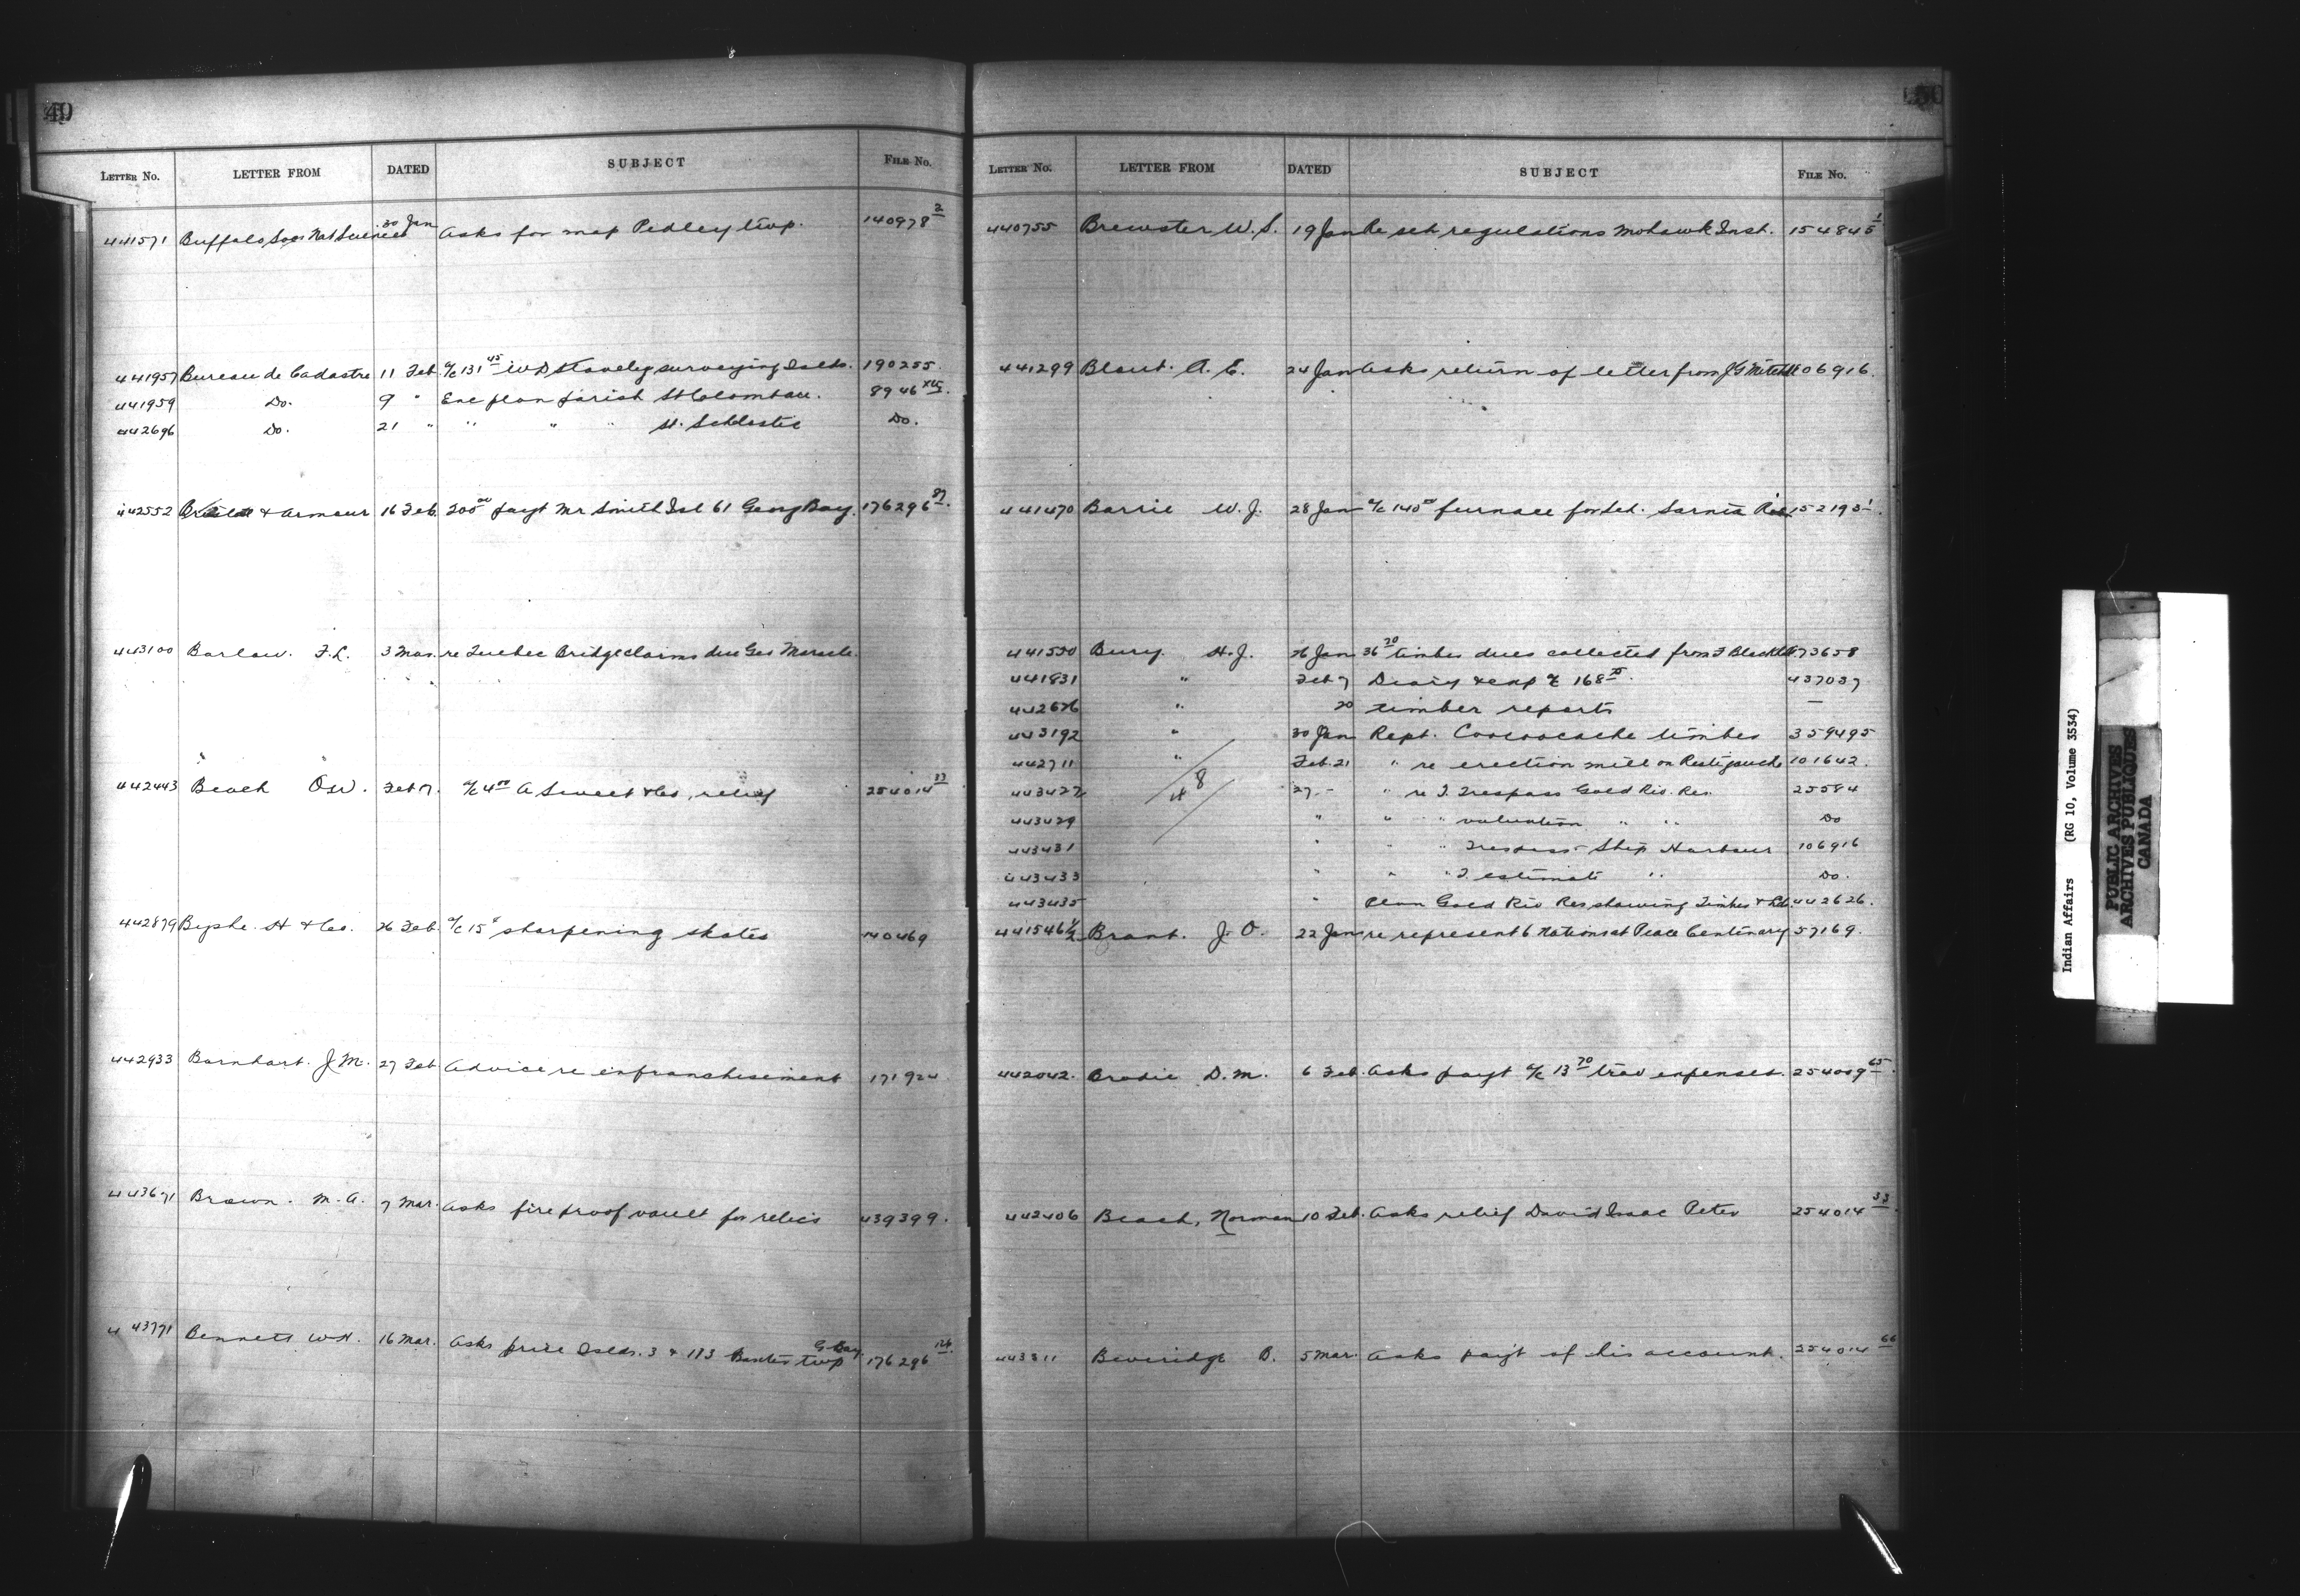 49
LETTER NO. LETTER FROM DATED SUBJECT FILE NO.
441571 Buffalo Socy Nat Sciences 30 Jan Asks for map Pedley twp. 140978 2
441957 Bureau de Cadastre 11 Feb a/c 131 45 W D Staveley surveying Islds. 190255.
441959 Do. 9 " Enc plan parish St Colomban. 8946
442696 Do. 21 " " " " St. Do.
442552 & Armour 16 Feb. 200 00 payt Mr Smith Isl 61 Georg Bay. 176296 87.
443100 Barlow. F.L. 3 Mar. re Quebec Bridge claims due Geo Maracle.
442443 Beach O W. Feb 7. a/c 4 00 A Sweet & Co, relief 254014 33
442879 Byshe. H & Co. 26 Feb. a/c 15 sharpening skates 140469
442933 Barnhart. J M. 27 Feb Advice re enfranchisement 171924
443671 Brown. M. A. 7 Mar. Asks fire proof vault for relics 439399.
443771 Bennett W H. 16 Mar. Asks price Islds. 3 & 173 Baxter twp G Bay. 176296
50
LETTER NO. LETTER FROM DATED SUBJECT FILE NO.
440755 Brewster W. S. 19 Jan Re sch regulations Mohawk Inst. 154845 1
441299 Blount. A. E. 24 Jan Asks return of letter from J G Mitchell 106916.
441470 Barrie W. J. 28 Jan a/c 140 00 furnace for Sch. Sarnia Res. 152193 1.
441550 Bury H. J. 26 Jan 36 70 timber dues collected from 373658
441831 " Feb 7 Diary & exp a/c 168 75. 437037
442676 " 20 timber reports —
443192 " 30 Jan Rept. Coucoucache timber 359495
442711 " Feb. 21 " re erection mill on Restigouche 101642.
443427 27 " " re T. Trespass Gold Riv. Res. 25584
443429 " " " valuation " " Do
443431 " " Trespass Ship Harbour 106916
443433 " " " T. estimate " Do.
443435 " Plan Gold Riv Res showing Timber & 442626.
H 8
441546 1/2 Brant. J. O. 22 Jan re represent 6 Nations at Peace Centenary 57169.
442042. Brodie D. M. 6 Feb. Asks payt a/c 13 70 trav expenses. 254009 65.
442406 Beach, Norman 10 Feb. Asks relief David Isaac Peter 254014 33.
443511 Beveridge B. 5 Mar. Asks payt of his account. 254014 66
Indian Affairs (RG 10, Volume 3534)
PUBLIC ARCHIVES
ARCHIVES PUBLIQUES
CANADA